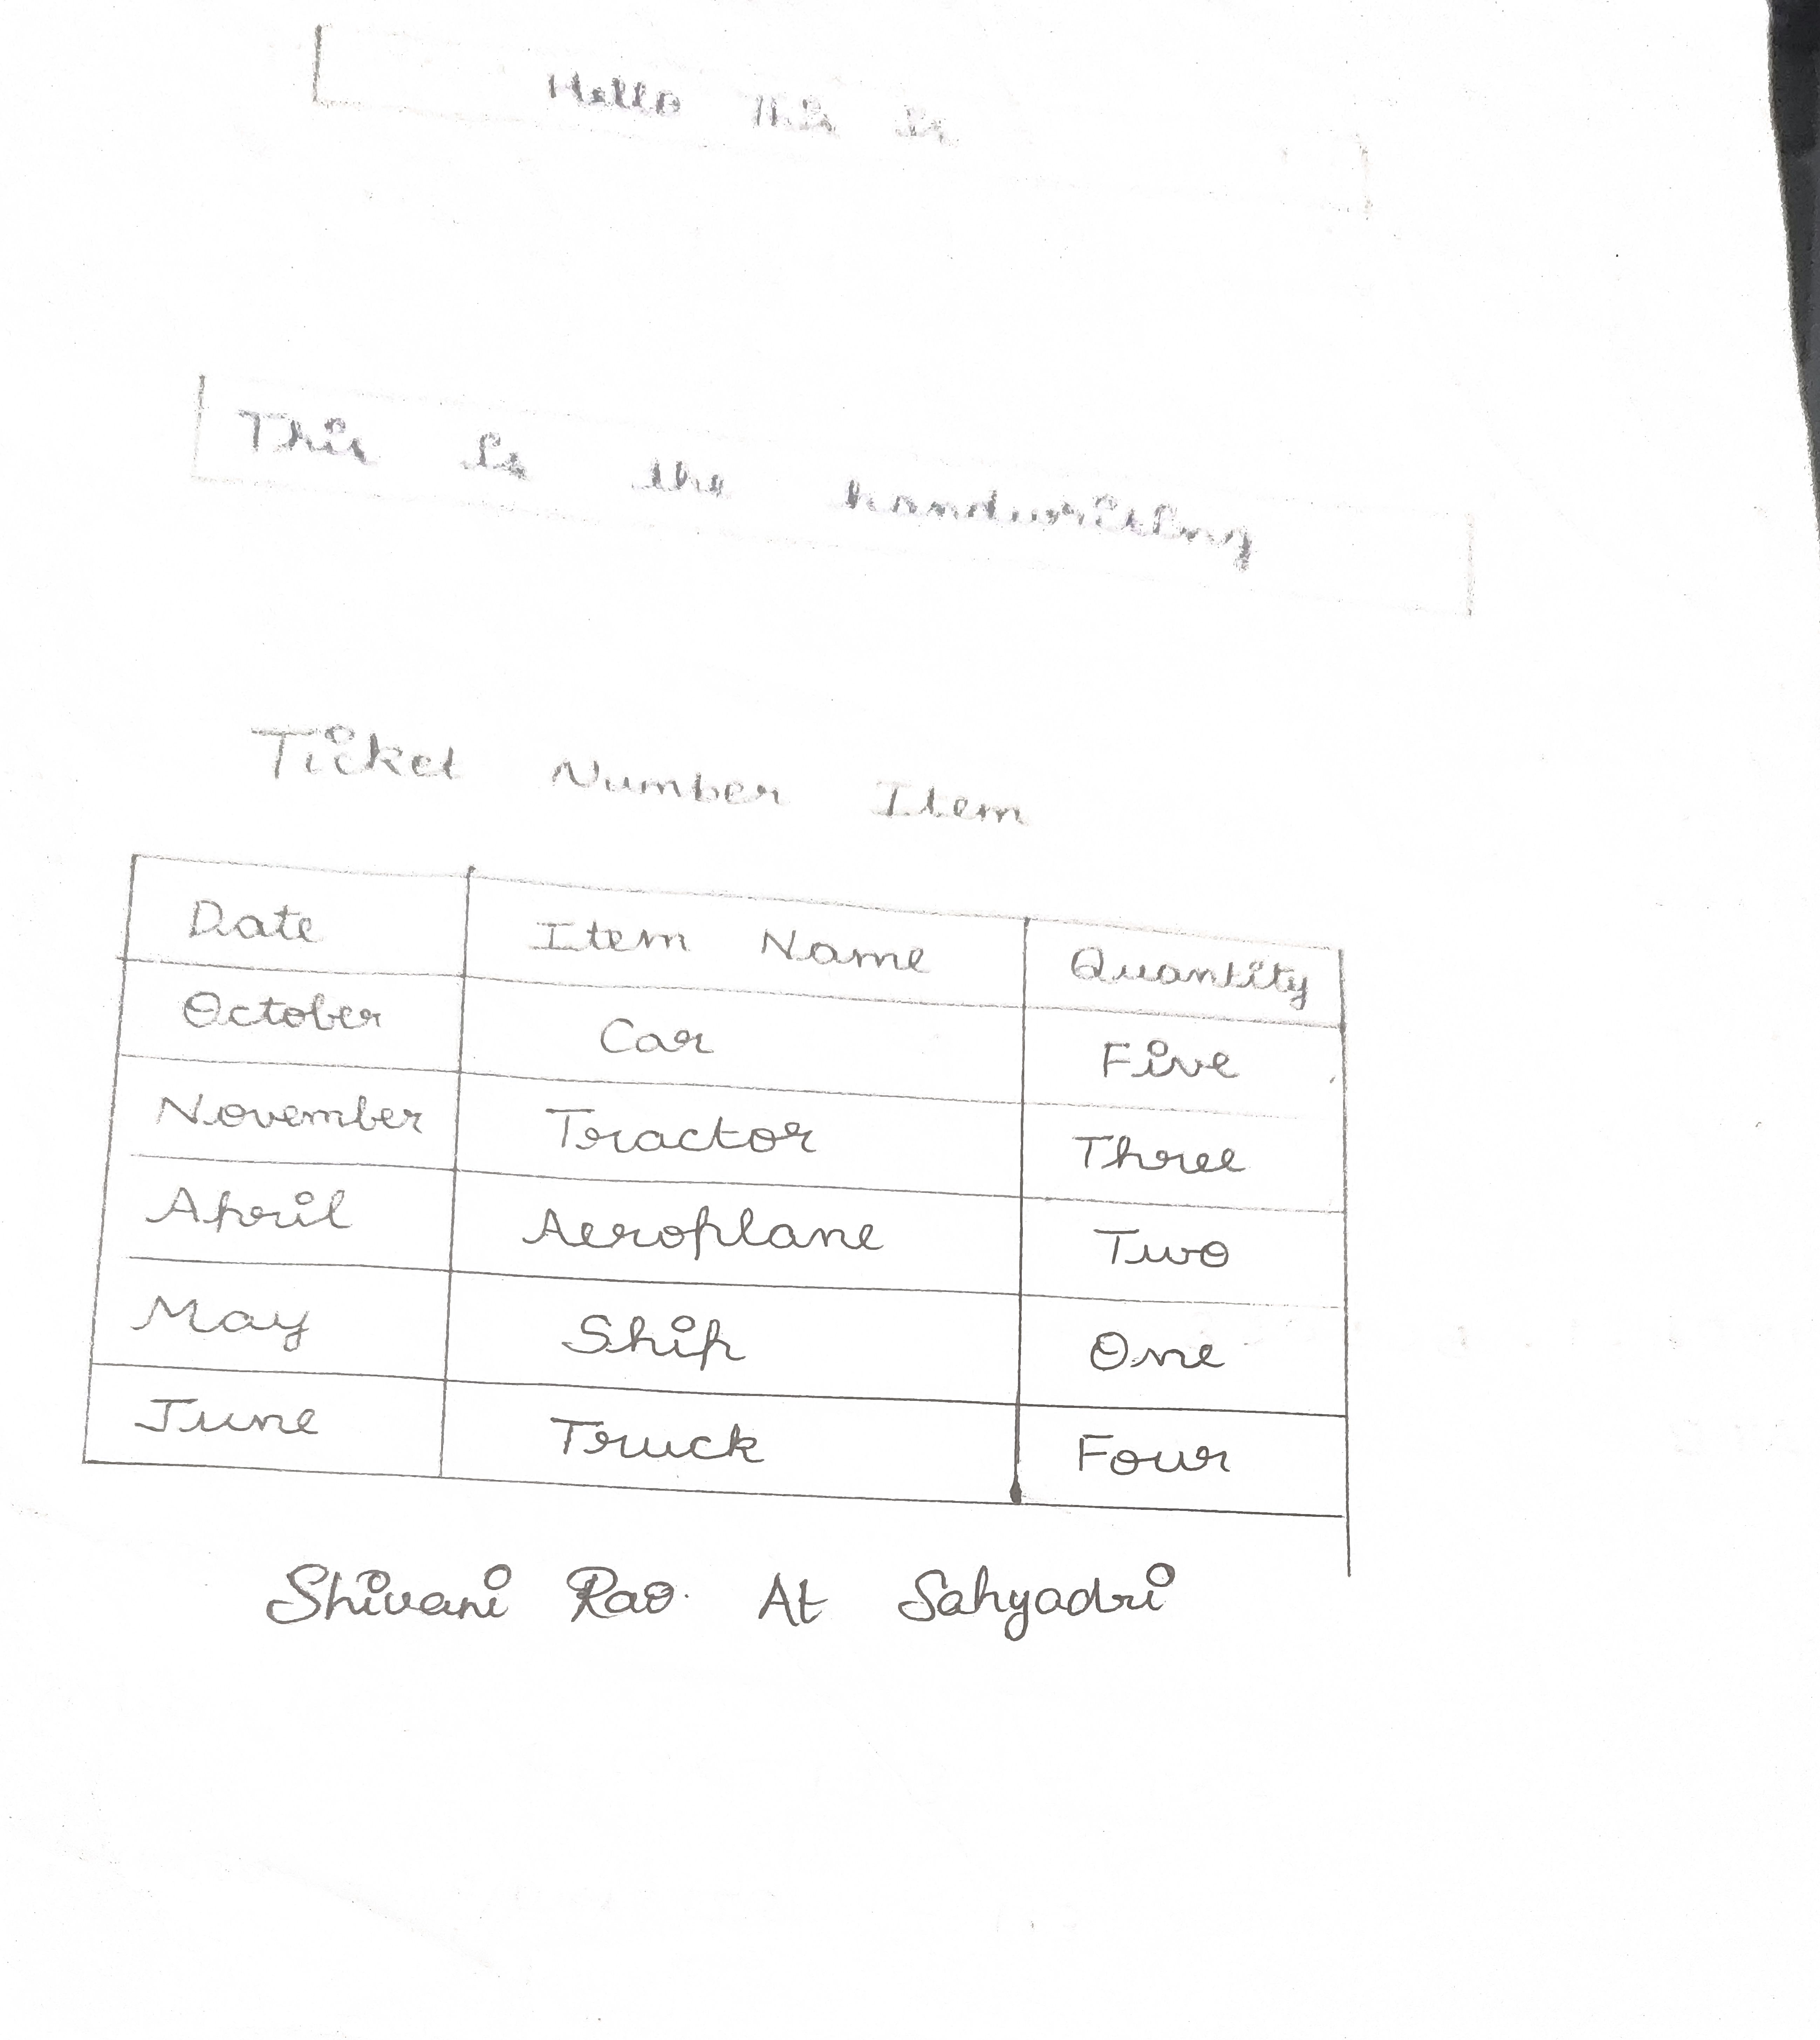 Hello This is
This is the handwriting
Ticket Number Item
Date Item Name Quantity
October Car Five
November Tractor Three
April Aeroplane Two
May Ship One
June Truck Four
Shivani Rao. At Sahyadri